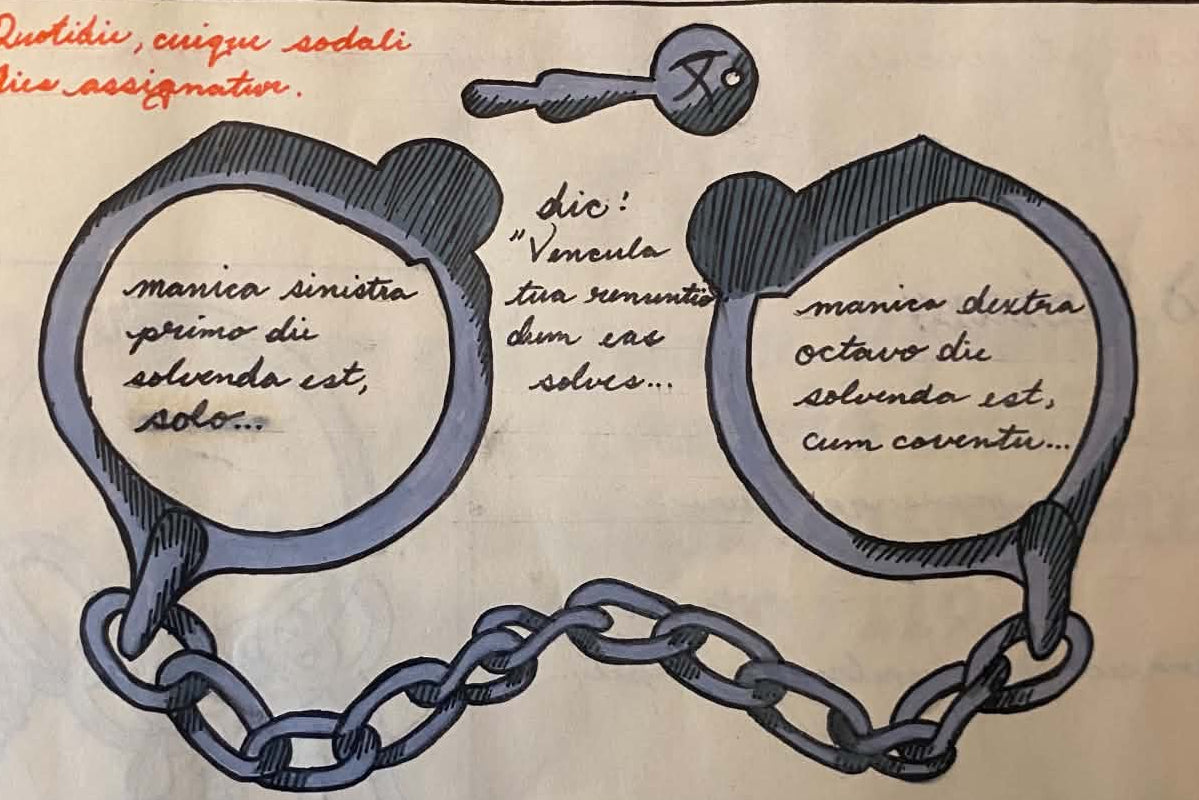 Quotidie, cuique sodali
dies assignatur.
dic:
"Vencula
tua renuntio
dum eas
solves...
manica sinistra
primo die
solvenda est,
solo...
manica dextra
octavo die
solvenda est,
cum coventu...